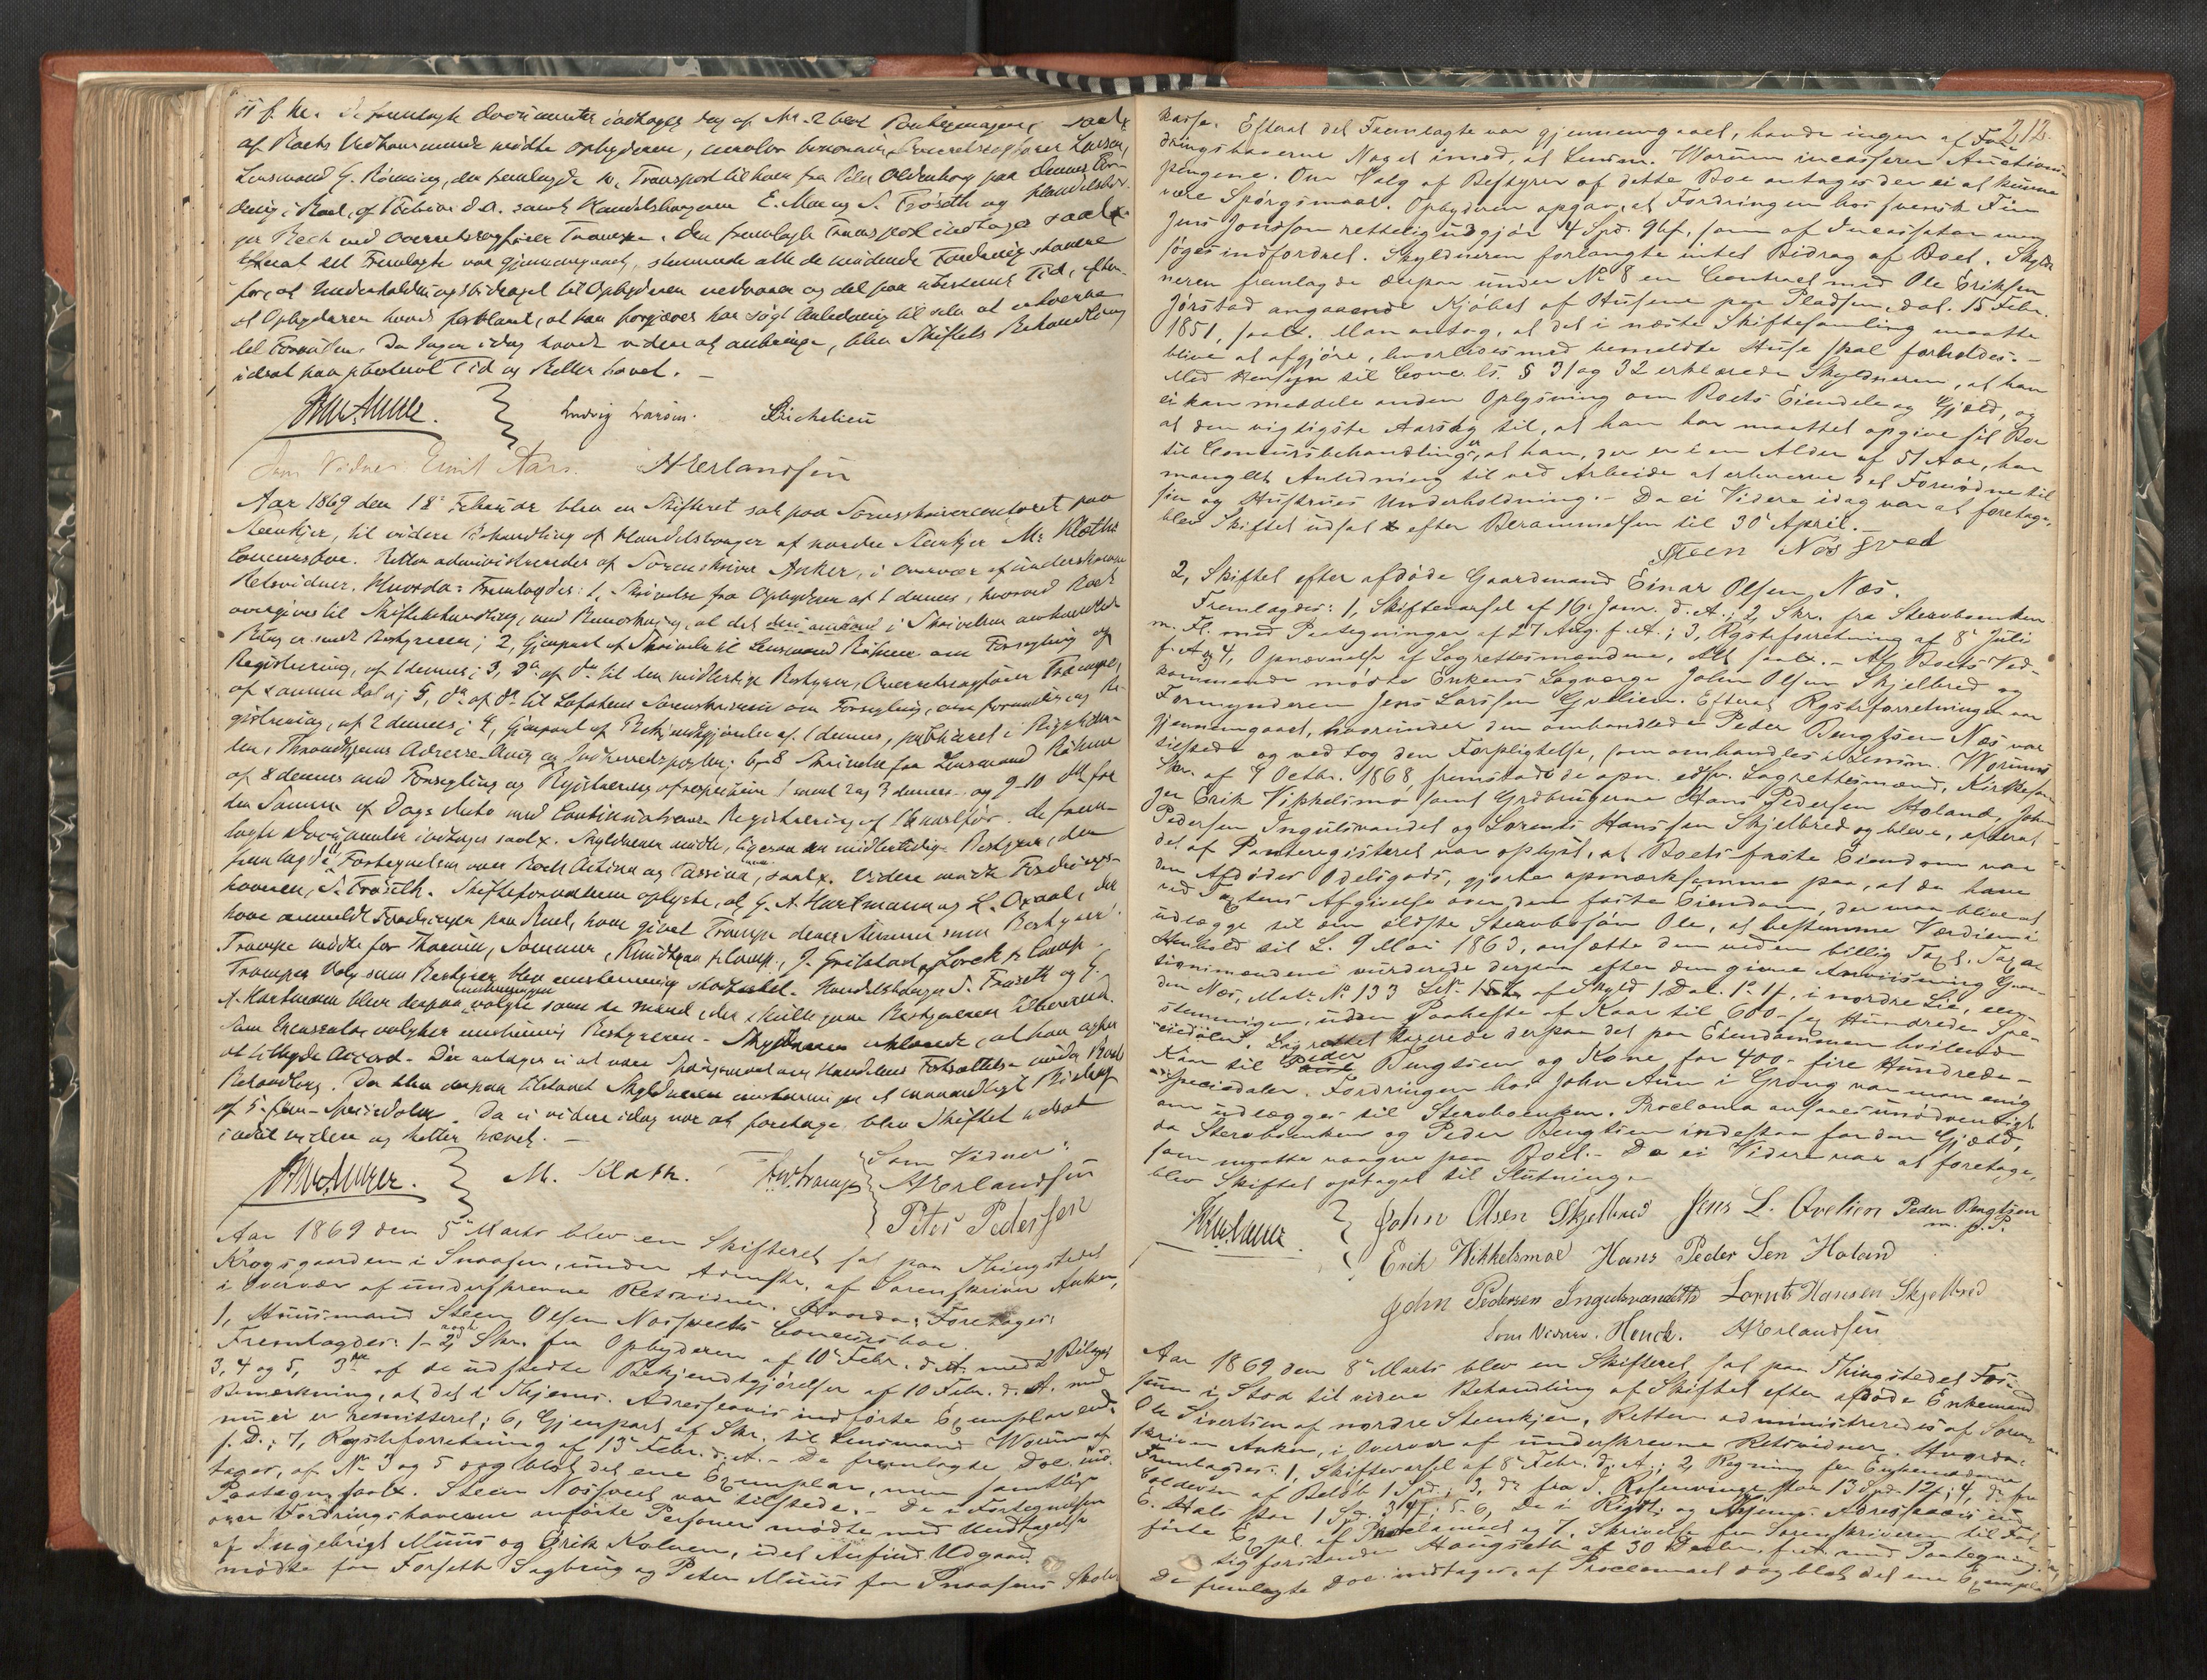 af Boets Vedkommende mødte Opbyderen,
Lensmand G. Rønning, der fremlagde 10, Transport til ham fra Peter Oldenborg paa dennes For-
dring i Boet, samt Handelsborgerne E. Moe og S. Frøseth og Handelsbor-
ger Beck ved Overretssagfører Trampe. Den fremlagte Transport indtages saalx.
Efterat det Fremlagte var gjennemgaaet, stemmede alle de mødende Fordringshavere
for, at Underholdningsbidraget til Opbyderen nedsættes og det paa ubestemt Tid, efter-
at Opbyderen havde forklaret, at han forgjæves har søgt Anledning til selv at erhverve
det Fornødne. Da Ingen idag havde videre at anbringe, blev Skiftets Behandling
udsat paa ubestemt Tid og Retten hævet. —
Ludvig Larsen. Richelieu
Som Vidner: Emil Aars. A Erlandsen
Aar 1869 den 18de Februar blev en Skifteret sat paa Sorenskrivercontoret paa
Steenkjer, til videre Behandling af Handelsborger af nordre Steenkjer M. Kloths
Concursboe. Retten administreredes af Sorenskriver Anker, i Overvær af underskrevne
Retsvidner. Hvorda: Fremlagdes: 1, Skrivelse fra Opbyderen af 1 dennes, hvorved Boet
overgives til Skiftebehandling, med Bemærkning, at det i Skrivelsen omhandlede
Bilag er sendt Bestyreren; 2, Gjenpart af Skrivelse til Lensmand Råhme om Forsegling og
Registrering, af 1 dennes; 3, Do af Do til den midlertidige Bestyrer, Overretssagfører Trampe,
af samme Dato; 5, Do af Do til Lofotens Sorenskriver om Forsegling, om fornøden, og Re-
gistrering, af 2 dennes; 4, Gjenpart af Bekjendtgjørelse af 1 dennes, publiceret i Rigstiden-
den, Throndhjems Adresse-Avis og Indherredsposten; 6-8 Skrivelse fra Lensmand Råhme
af 8 dennes med Forsegling og Registrering af respective 1 samt 2 og 3 dennes og 9-10 Do fra
den Samme af Dags Dato med Continuations Registrering af 16 hujus. De frem-
lagte Documenter indtages saalx. Skyldneren mødte, ligesom den midlertidige Bestyrer, der
fremlagde Fortegnelse over Boets Activa og Passiva, saalx. Videre mødte Fordrings-
haveren, S. Frøseth. Skifteforvalteren oplyste, at G. A. Hartmann og L. Oxaal, der
have anmeldt Fordringer paa Boet, have givet Trampe deres Stemme som Bestyrer.
Trampe mødte for Thaulow, Sommer, Knudtzon & Comp., J. Grilstad, Lorck & Comp.
Trampes Valg som Bestyrer blev eenstemmig stadfæstet. Handelsborger S. Frøseth og G.
A. Hartmann blev derpaa eenstemmigen valgte som de Mænd, der skulle gjøre Bestyreren Tilsvarende.
Som Incassator valgtes eenstemmig Bestyreren. Skyldneren erklærede, at han agter
at tilbyde Accord. Der antages ei at være Spørgsmaal om Handelens Fortsættelse under Boets
Behandling. Der blev derpaa tilstaaet Skyldneren eenstemmigen et maanedligt Bidrag
af 5 - fem - Speciedaler. Da ei videre idag var at foretage, blev Skiftet udsat
indtil videre og Retten hævet. —
M. Kloth. Fr. Trampe Som Vidner:
A Erlandsen
Peter Pedersen
Aar 1869 den 5te Marts blev en Skifteret sat paa Thingstedet
Krogsgaarden i Snaasen, under Adminstr. af Sorenskriver Anker,
i Overvær af underskrevne Retsvidner. Hvorda: Foretoges:
1, Huusmand Steen Olsen Nøisveets Concursboe.
Fremlagdes: 1-2, Skr. fra Opbyderen af 10de Febr. d. A. med 2 Bilage
3, 4 og 5, 3de af de udstedte Bekjendtgjørelser af 10 Febr. d. A. med
Bemærkning, at det i Thjems. Adresseavis indførte Exemplar end-
nu ei er remitteret; 6, Gjenpart af Skr. til Lensmand Worum af
s. D.; 7, Rgstrforretning af 13de Febr. d. A. - De fremlagte Doc. ind-
tages, af No 3 og 5 dog blot det ene Exemplar, men samtlige
Paategn. saalx. Steen Nøisveet var tilstede. - De i Fortegnelsen
over Fordringshaverne anførte Personer mødte med Undtagelse
af Ingebrigt Muus og Erik Kolven, idet Anfind Udgaard
mødte for Forseth Sagbrug og Peter Muus for Snaasens Skole-
212.
kasse. Efterat det Fremlagte var gjennemgaaet, havde ingen af For-
dringshaverne Noget imod, at Lensm. Worum incasserer Auctions-
pengene. Om Valg af Bestyrer af dette Boe antages der ei at kunne
være Spørgsmaal. Opbyderen opgav, at Fordringen hos svensk Fin
Jens Jonsson rettelig udgjør 4 Spd. 96 f., som af Incassator maa
søges indfordret. Skyldneren forlangte intet Bidrag af Boet. Skyld-
neren fremlagde derpaa under No 8 en Contract med Ole Eriksen
Jørstad angaaende Kjøbet af Husene paa Pladsen, dat. 15 Febr.
1851, saalx. Man antog, at det i næste Skiftesamling maatte
blive at afgjøre, hvorledes med bemeldte Huse skal forholdes. —
Med Hensyn til Conc. ls. § 31 og 32 erklærede Skyldneren, at han
ei kan meddele anden Oplysning om Boets Eiendele og Gjæld, og
at den vigtigste Aarsag til, at han har maattet opgive sit Boe
til Concursbehandling, er at han, der er i en Alder af 51 Aar, har
manglet Anledning til ved Arbeide at erhverve det Fornødne til
sin og Hustrues Underholdning. - Da ei Videre idag var at foretage,
blev Skiftet udsat efter Berammelsen til 30te April. —
Steen Nøs gved
2, Skiftet efter afdøde Gaardmand Einar Olsen Næs.
Fremlagdes: 1, Skiftevarsel af 16de Janr. d. A.; 2, Skr. fra Stervboenken
m. Fl. med Paategninger af 27 Aug. f. A.; 3, Rgstrforretning af 8de Juli
f. A. og 4, Opnævnelse af Lagrettesmændene, Alt saalx. - Af Boets Ved-
kommende mødte Enkens Lagværge John Olsen Skjelbred og
Formynderen Jens Larssen Qvelien. Efterat Rgstrforretningen var
gjennemgaaet, hvorunder den omhandlede Peder Bengtsen Næs var
tilstede og vedtog den Forpligtelse, som omhandles i Lensm. Worums
Skr. af 9 Octbr. 1868, fremstode de opn. edsv. Lagrettesmænd, Kirkesan-
ger Erik Vikkelsmo samt Grdbrugerne Hans Pedersen Holand, John
Pedersen Ingulsvandet og Lorents Hanssen Skjelbred og bleve, efterat
det af Panteregisteret var oplyst, at Boets faste Eiendom var
den Afdødes Odelsgods, gjorte opmærksomme paa, at de have
ved Taxtens Afgivelse over den faste Eiendom, der maa blive at
udlægge til den ældste Stervbosøn Ole, at bestemme Værdien i
Henhold til L. 9 Mai 1863, ansætte den under billig Taxt. Taxa-
tionsmændene vurderede derpaa efter den givne Anviisning Gaar-
den Næs, Matr. No 133 LNo 154, af Skyld 1 Dal. 1 o. 1 f, i nordre Lie, een-
stemmigen, uden Paahefte af Kaar til 600 - sex Hundrede Spe-
ciedaler. Lagrettet taxerede derpaa det paa Eiendommen hvilende
Kaar til Peder Bengtsen og Kone, for 400 - fire Hundrede -
Speciedaler. Fordringen hos John Aum i Grong var man enig
om udlægges til Stervboenken. Proclama ansaaes unødvendigt
da Stervboenken og Peder Bengtsen indestaa for den Gjæld,
som maatte vaagne paa Boet. - Da ei Videre var at foretage,
blev Skiftet optaget til Slutning. —
John Olsen Skjelbred Jens L. Qvelien Peder Bengtsen
m. p. P.
Erik Wikkelsmoe Hans Peder Sen Holand
John Pedersen Ingulsvandette Lornts Hansen Skjelbred
Som Vidner. Henck. A Erlandsen
Aar 1869 den 8de Marts blev en Skifteret sat paa Thingstedet Fos-
sum i Stod til videre Behandling af Skiftet efter afdøde Enkemand
Ole Sivertsen af nordre Steenkjer. Retten administreredes af Soren-
skriver Anker, i Overvær af underskrevne Retsvidner. Hvorda:
Fremlagdes: 1, Skiftevarsel af 8de Febr. d. A.; 2, Regning fra
Coldevin af Beløb 1 Spd.; 3, Do fra J. Rosenvinge stor 13 Spd. 12 f; 4, Do fra
E. Dahl stor 1 Spd. 34 f; 5-6, De i Rigst. og Thjems. Adresseavis ind-
førte Expl. af Proclamaet og 7, Skrivelse fra Sorenskriveren til Fat-
tigforstander Haugseth af 30 Decbr. f. A. med Paategning.
De fremlagte Doc. indtages, af Proclamaet dog blot det ene Exemplar,